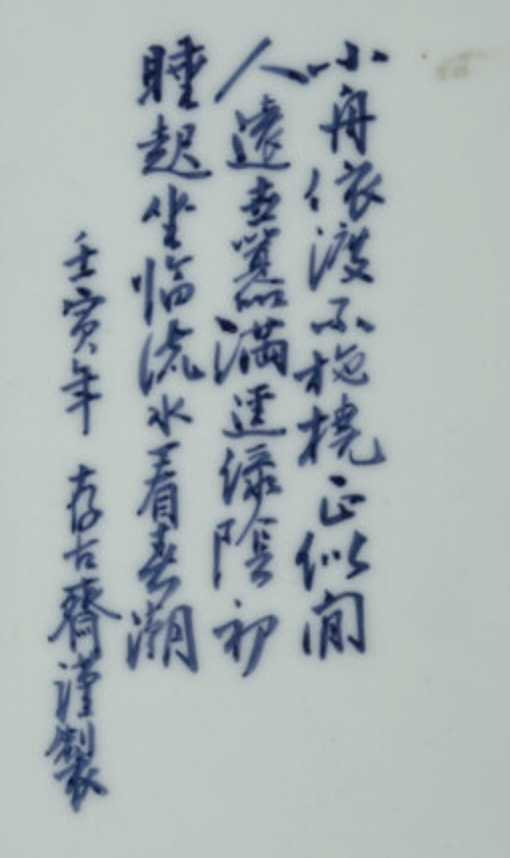 小舟依渡不拖橈正似閒
人遠世囂滿逕綠陰初
睡起坐臨流水看春潮
壬寅年 存古齋謹製